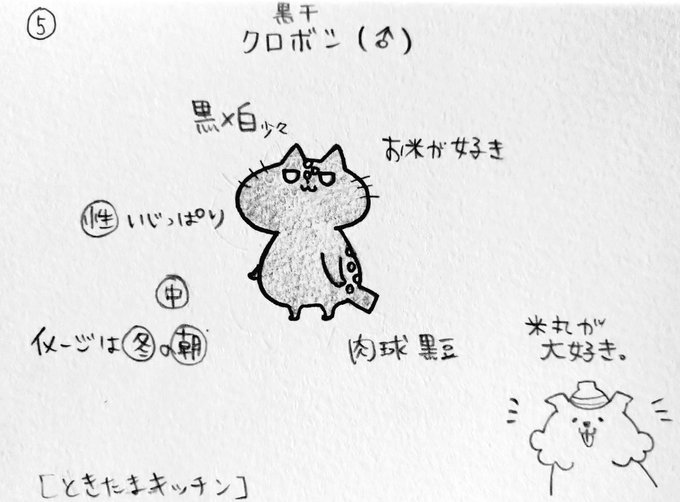 ⑤
黒干
クロボシ(♂)
黒×白少々
お米が好き
性 いじっぱり
中
イメージは冬の朝
肉球 黒豆
米丸が
大好き。
[ときたまキッチン]